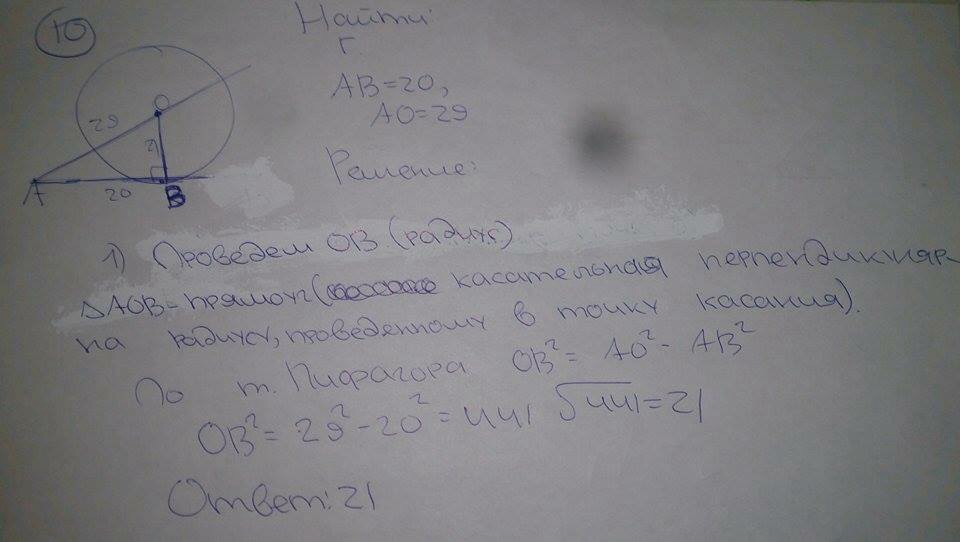 10
Найти:
r.
AB=20,
AO=29
O
29
21
A
20
B
Решение:
1) Проведем OB (радиус)
△AOB=прямоуг( касательная перпендикуляр
на радиусу, проведенному в точку касания).
По т. Пифагора OB²= AO²- AB²
OB²= 29²-20²=441 √441=21
Ответ:21